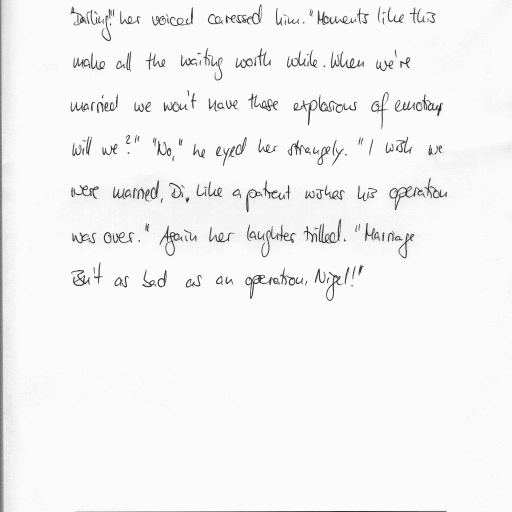 "Darling!" her voiced caressed him. "Moments like this
make all the waiting worth while. When we're
married we won't have these explosions of emotion
will we?" "No," he eyed her strangely. "I wish we
were married, Di. Like a patient wishes his operation
was over." Again her laughter trilled. "Marriage
isn't as bad as an operation, Nigel!"